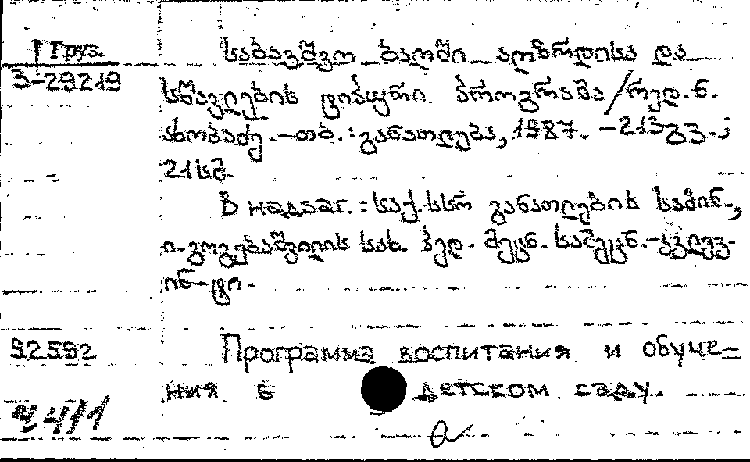 Груз. საბავშვო ბაღში აღზრდისა და
3-29219 სწავლების ტიპიური პროგრამა/რედ. ნ.
ახობაძე. -თბ.: განათლება, 1987. -213გვ.;
21სმ.
В надзаг.: საქ.სსრ განათლების სამინ.,
ი.გოგებაშვილის სახ. პედ. მეცნ. სამეცნ.-კვლევ.
ინ-ტი.
92592 Программа воспитания и обуче-
ния в детском саду.